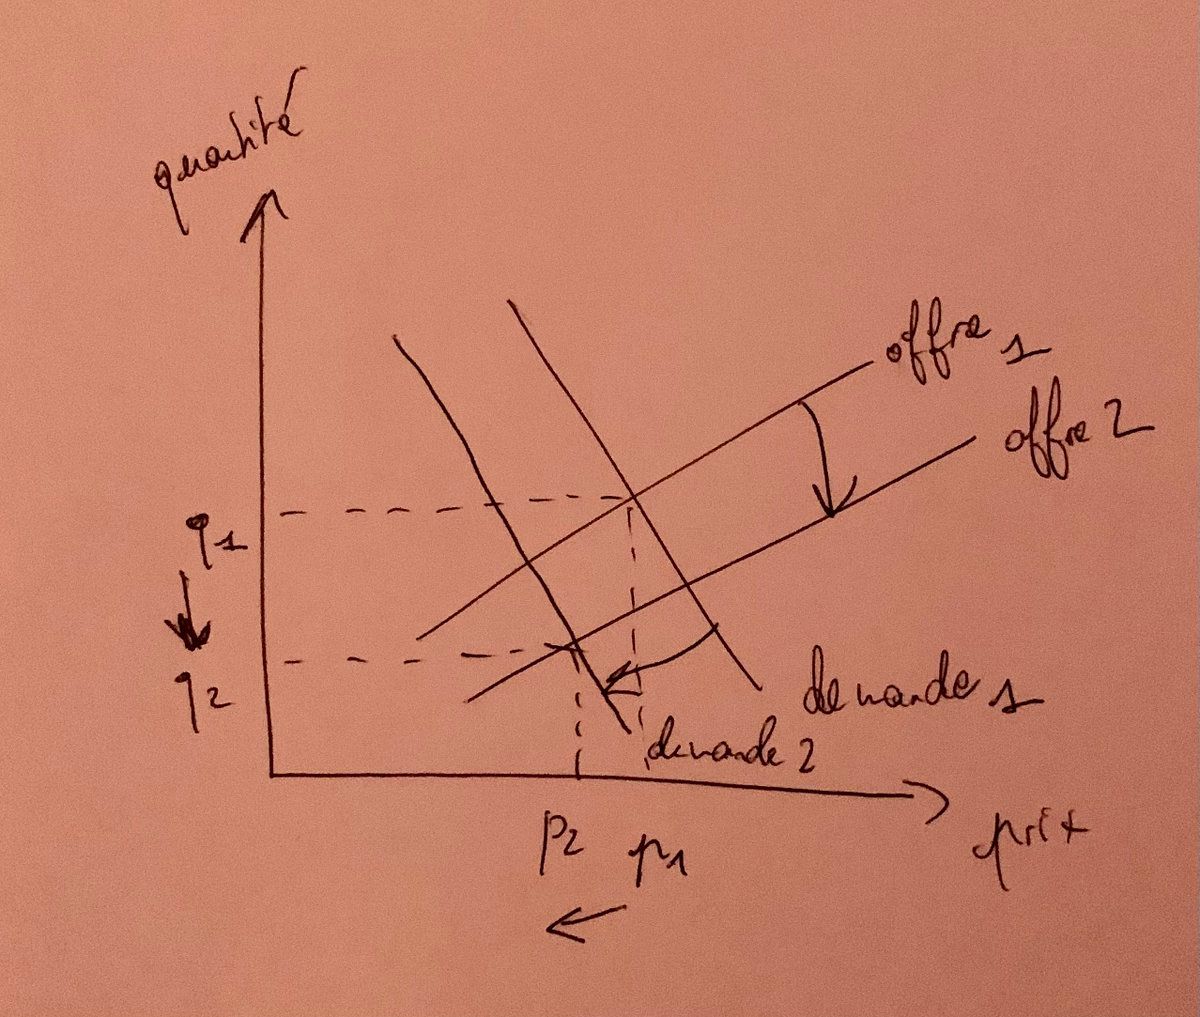 quantité
offre 1
offre 2
q1
q2
demande 1
demande 2
p2 p1
prix